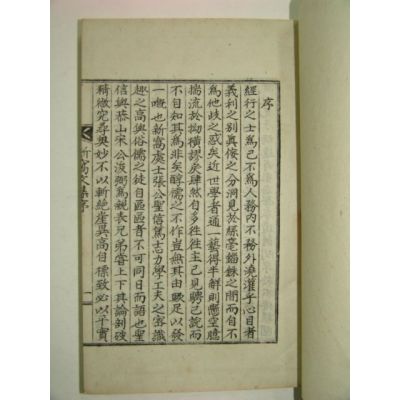 序
經行之士爲己不爲人務內不務外澆灌乎心目者
義利之別眞侫之分洞見於絲毫錙銖之間而自不
爲他歧之惑矣近世學者通一藝得半解則懸空臆
揣流於拗橫謬矣肆然自多徃徃主己見騁己說而
不自知其爲非矣醇儒之不作豈無其由興足以發
一嘅也斬窩處士張公聖信篤志力學工夫之密識
趣之高與俗儒之徒自區區者不可同日而語也聖
信與恭山宋公汲弼爲親表兄弟嘗上下其論剖破
精微究尋奧妙不以斬絶崖異高自標致必以平實
窩文集序
一